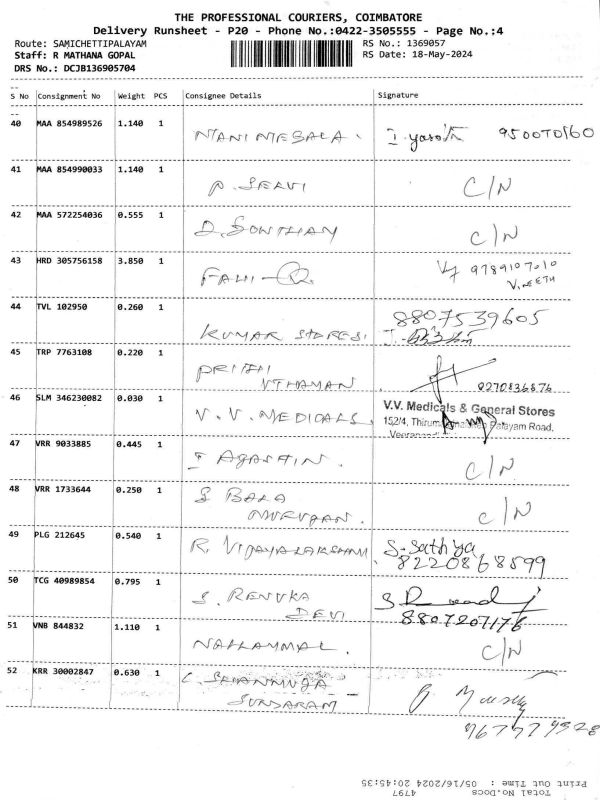 THE PROFESSIONAL COURIERS, COIMBATORE
Delivery Runsheet - P20 - Phone No.:0422-3505555 - Page No.:4
Route: SAMICHETTIPALAYAM RS No.: 1369057
Staff: R MATHANA GOPAL RS Date: 18-May-2024
DRS No.: DCJB136905704
S No Consignment No Weight PCS Consignee Details Signature
40 MAA 854989526 1.140 1
MANI MEGALA. 
41 MAA 854990033 1.140 1
P. SELVI C/N
42 MAA 572254036 0.555 1
D. C/N
43 HRD 305756158 3.850 1
9789107010
VINEETH
44 TVL 102950 0.260 1
KUMAR STORES. 8807539605
45 TRP 7763108 0.220 1
PRITHI
UTHAMAN 8270836876
46 SLM 346230082 0.030 1
V.V. MEDICALS. V.V. Medicals & General Stores
152/4, Palayam Road,
47 VRR 9033885 0.445 1
I AGASTIN. C/N
48 VRR 1733644 0.250 1
S BALA
MURUGAN. C/N
49 PLG 212645 0.540 1
R. VIJAYALAKSHMI S. Sathya
8220868599
50 TCG 40989854 0.795 1
S. RENUKA
DEVI 8807207176
51 VNB 844832 1.110 1
NALLAMMAL. C/N
52 KRR 30002847 0.630 1
SUNDARAM
Total No.Docs 4797
Print Out Time : 05/16/2024 20:45:35